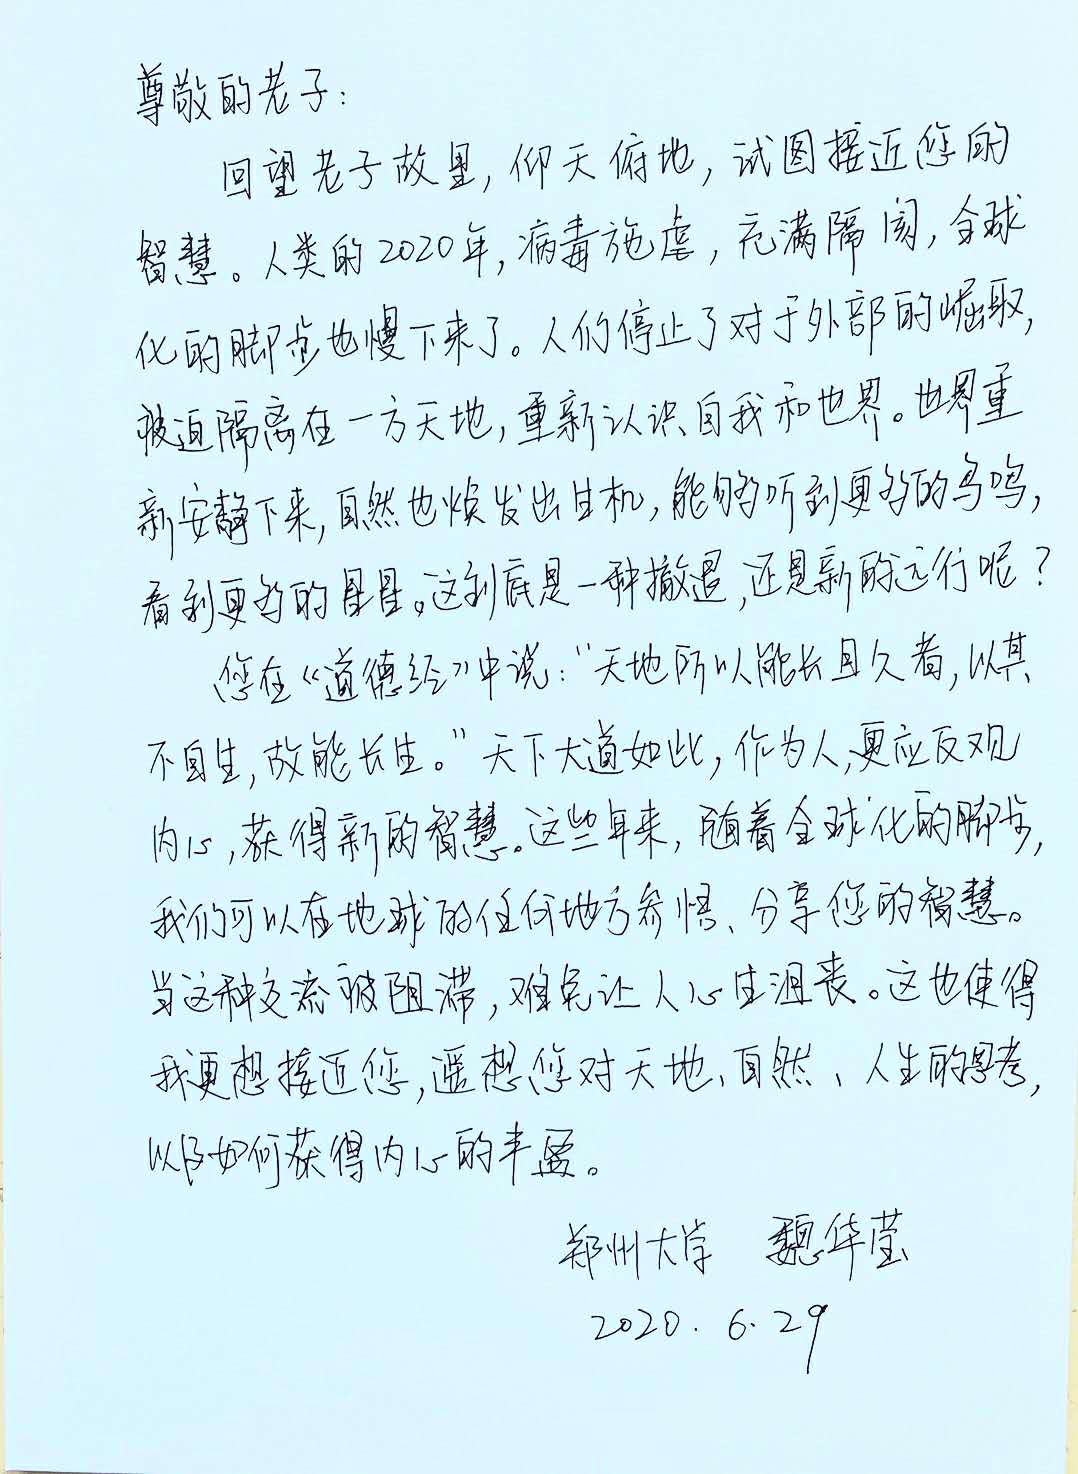 尊敬的老子：
回望老子故里，仰天俯地，试图接近您的
智慧。人类的2020年，病毒施虐，充满隔阂，全球
化的脚步也慢下来了。人们停止了对于外部的崛取，
被迫隔离在一方天地，重新认识自我和世界。世界重
新安静下来，自然也焕发出生机，能够听到更多的鸟鸣，
看到更多的星星。这到底是一种撤退，还是新的远行呢？
您在《道德经》中说：“天地所以能长且久者，以其
不自生，故能长生。”天下大道如此，作为人，更应反观
内心，获得新的智慧。这些年来，随着全球化的脚步，
我们可以在地球的任何地方参悟、分享您的智慧。
当这种交流被阻滞，难免让人心生沮丧。这也使得
我更想接近您，遥想您对天地、自然、人生的思考，
以及如何获得内心的丰盈。
郑州大学 魏华莹
2020.6.29